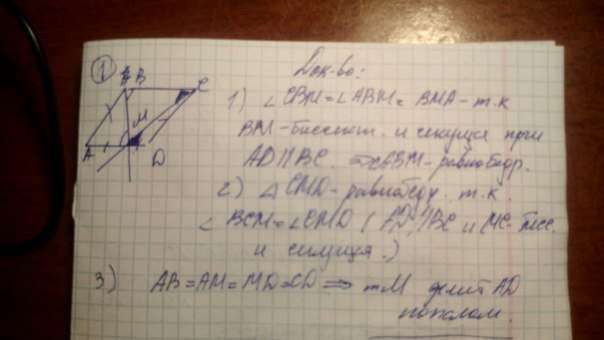 1
B
C
M
A
D
Док-во:
1) ∠CBM=∠ABM=BMA-т.к
BM-биссект. и секущая при
AD||BC. ⇒ ABM-равнобедр.
2) △CMD-равнобедр. т.к.
∠BCM=∠CMD (AD||BC и MC-бисс.
и секущая.)
3) AB=AM=MD=CD ⇒ т M делит AD
пополам.